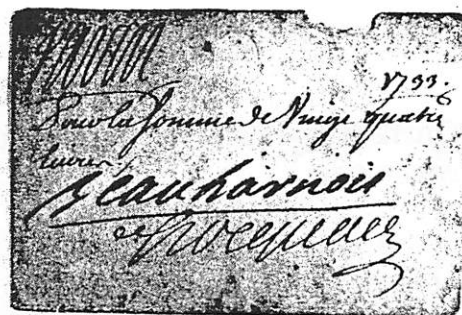 1733.
Pour la somme de Vingt quatre
livres
Beauharnois
Hocquart